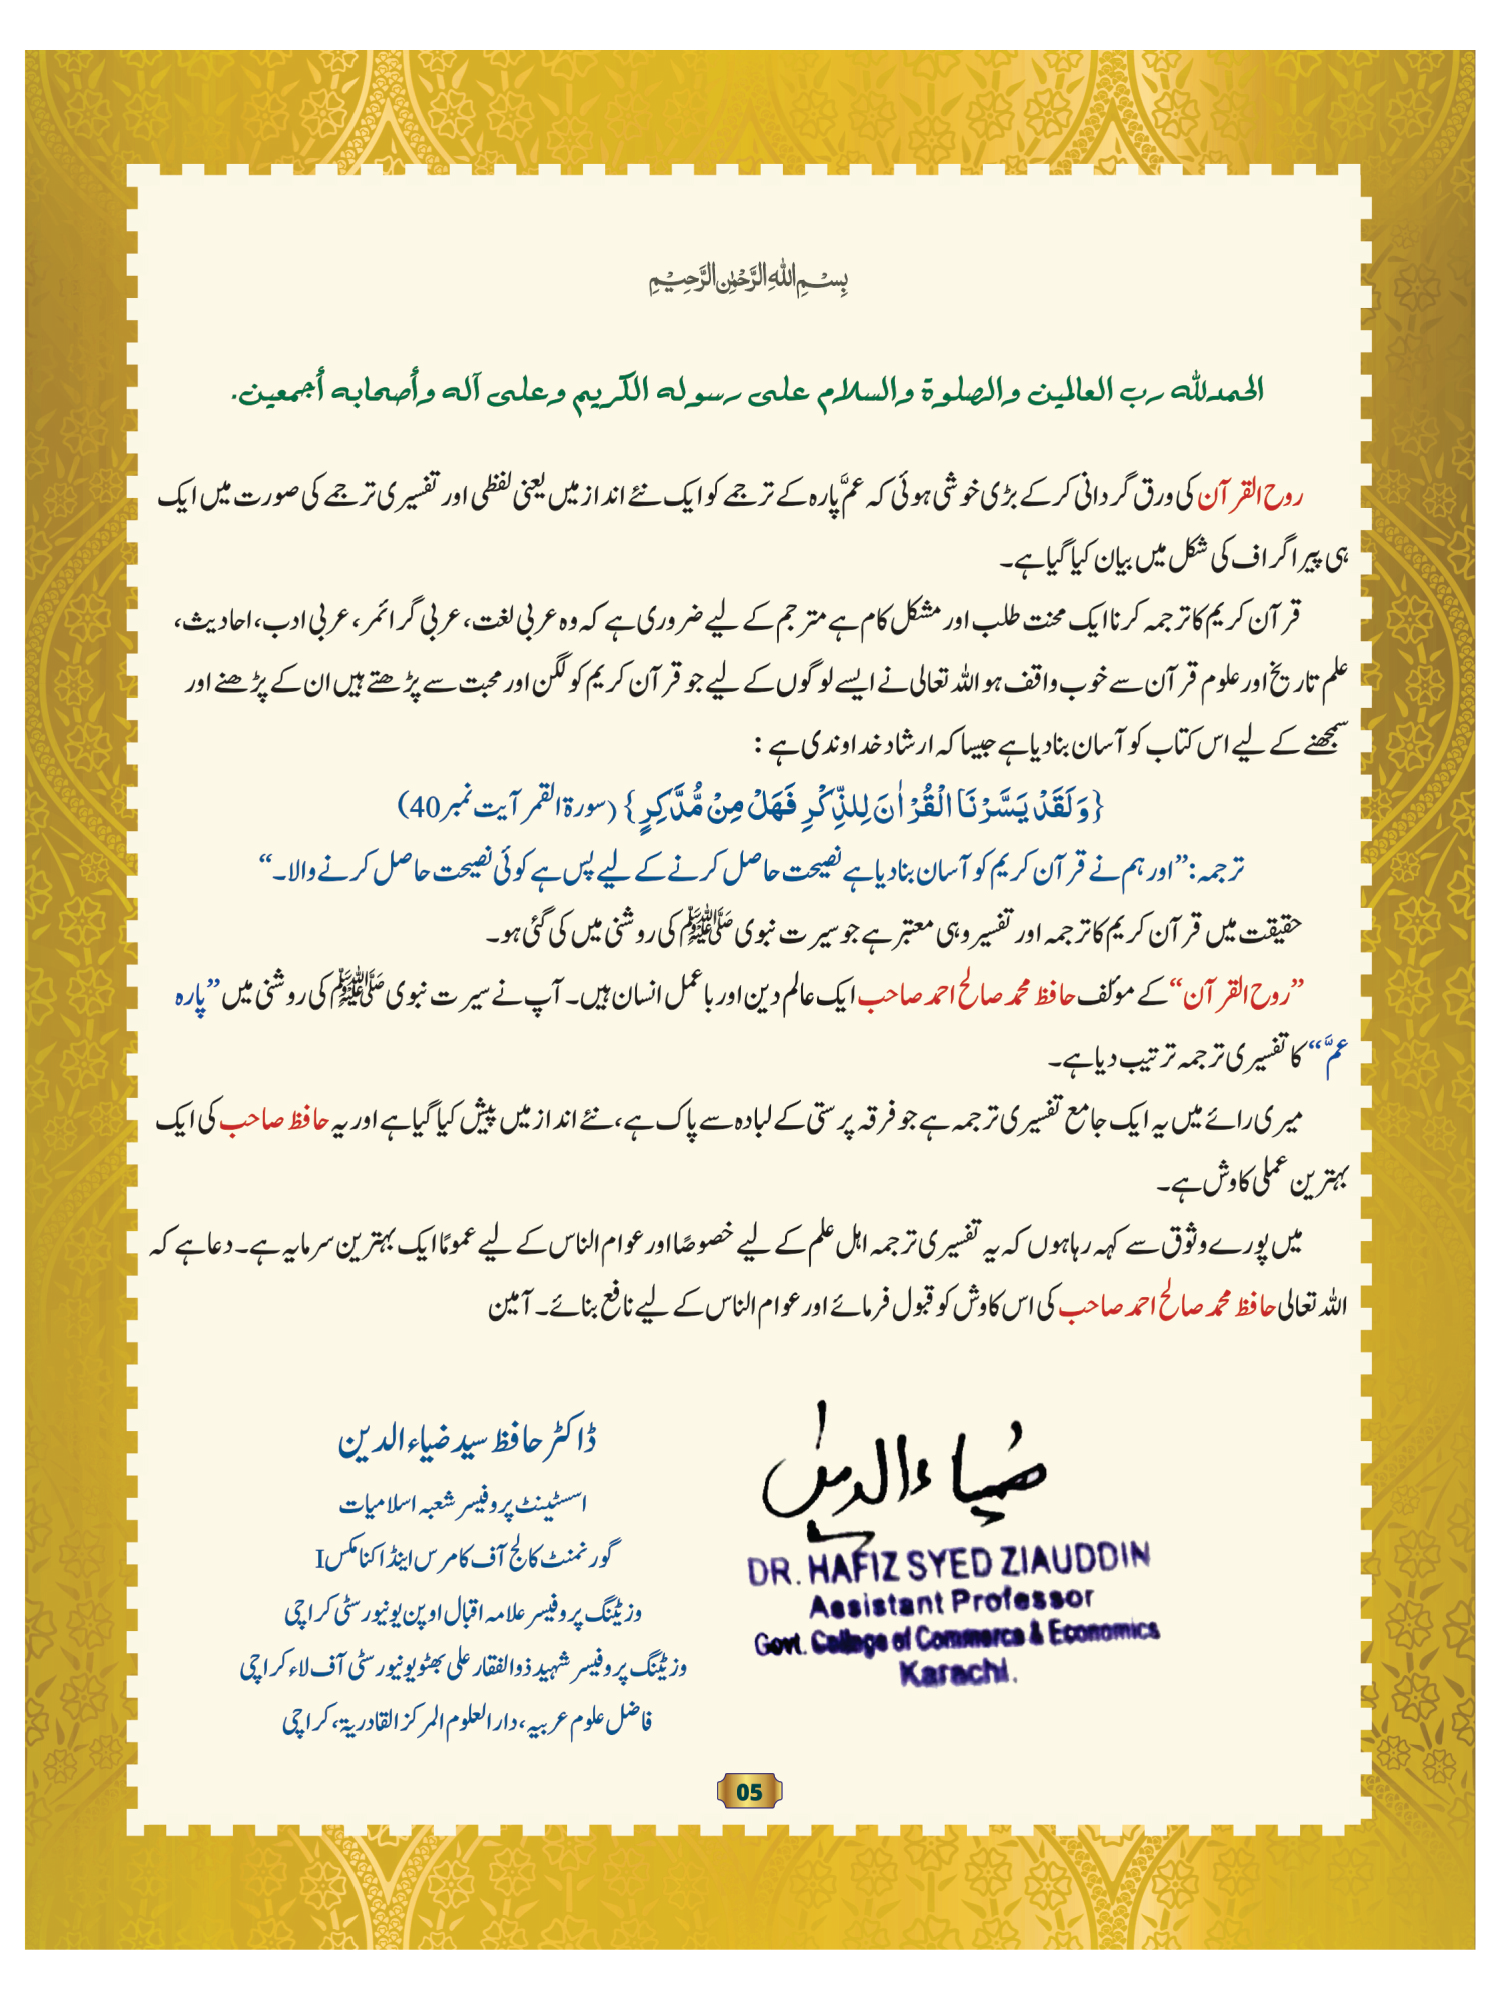 بِسْمِ اللهِ الرَّحْمٰنِ الرَّحِيْمِ
الحمدلله رب العالمين والصلوة والسلام على رسوله الكريم وعلى آله وأصحابه أجمعين.
روح القرآن کی ورق گردانی کرکے بڑی خوشی ہوئی کہ عمَّ پارہ کے ترجمے کو ایک نئے انداز میں یعنی لفظی اور تفسیری ترجمے کی صورت میں ایک
ہی پیراگراف کی شکل میں بیان کیا گیا ہے۔
قرآن کریم کا ترجمہ کرنا ایک محنت طلب اور مشکل کام ہے مترجم کے لیے ضروری ہے کہ وہ عربی لغت، عربی گرائمر، عربی ادب، احادیث،
علم تاریخ اور علوم قرآن سے خوب واقف ہو اللہ تعالی نے ایسے لوگوں کے لیے جو قرآن کریم کو لگن اور محبت سے پڑھتے ہیں ان کے پڑھنے اور
سمجھنے کے لیے اس کتاب کو آسان بنا دیا ہے جیسا کہ ارشاد خداوندی ہے :
{وَلَقَدْ يَسَّرْنَا الْقُرْاٰنَ لِلذِّكْرِ فَهَلْ مِنْ مُّدَّكِرٍ} (سورۃ القمر آیت نمبر 40)
ترجمہ: ”اور ہم نے قرآن کریم کو آسان بنا دیا ہے نصیحت حاصل کرنے کے لیے پس ہے کوئی نصیحت حاصل کرنے والا۔“
حقیقت میں قرآن کریم کا ترجمہ اور تفسیر وہی معتبر ہے جو سیرت نبوی ﷺ کی روشنی میں کی گئی ہو۔
”روح القرآن“ کے مؤلف حافظ محمد صالح احمد صاحب ایک عالم دین اور باعمل انسان ہیں۔ آپ نے سیرت نبوی ﷺ کی روشنی میں ”پارہ
عمَّ“ کا تفسیری ترجمہ ترتیب دیا ہے۔
میری رائے میں یہ ایک جامع تفسیری ترجمہ ہے جو فرقہ پرستی کے لبادہ سے پاک ہے، نئے انداز میں پیش کیا گیا ہے اور یہ حافظ صاحب کی ایک
بہترین عملی کاوش ہے۔
میں پورے وثوق سے کہہ رہا ہوں کہ یہ تفسیری ترجمہ اہل علم کے لیے خصوصًا اور عوام الناس کے لیے عمومًا ایک بہترین سرمایہ ہے۔ دعا ہے کہ
اللہ تعالی حافظ محمد صالح احمد صاحب کی اس کاوش کو قبول فرمائے اور عوام الناس کے لیے نافع بنائے۔ آمین
ضیاء الدین
DR. HAFIZ SYED ZIAUDDIN
Assistant Professor
Govt. College of Commerce & Economics
Karachi.
ڈاکٹر حافظ سید ضیاء الدین
اسسٹینٹ پروفیسر شعبہ اسلامیات
گورنمنٹ کالج آف کامرس اینڈ اکنامکس I
وزیٹنگ پروفیسر علامہ اقبال اوپن یونیورسٹی کراچی
وزیٹنگ پروفیسر شہید ذوالفقار علی بھٹو یونیورسٹی آف لاء کراچی
فاضل علوم عربیہ، دارالعلوم المرکز القادریۃ، کراچی
05